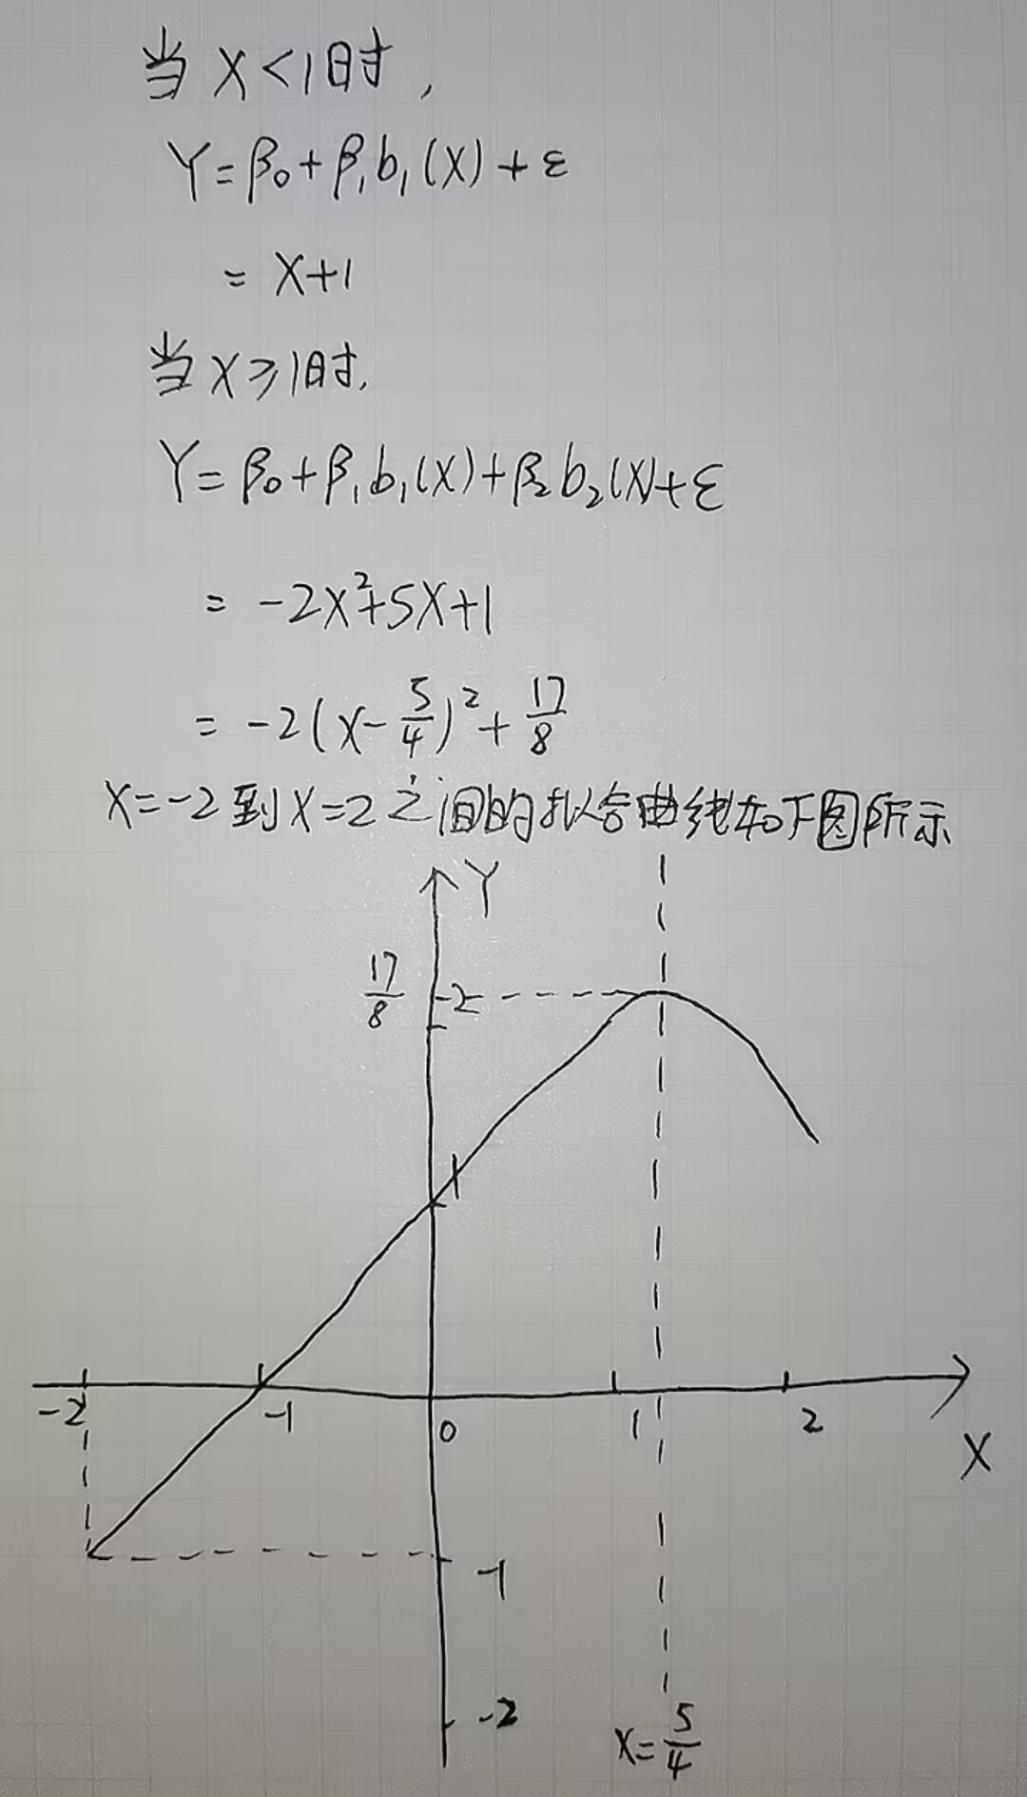 当 X<1时,
Y=β₀+β₁b₁(X)+ε
= X+1
当 X≥1时,
Y=β₀+β₁b₁(X)+β₂b₂(X)+ε
= -2X²+5X+1
= -2(X-5/4)²+17/8
X=-2到X=2之间的拟合曲线如下图所示
Y
17/8
2
1
-2
-1
0
1
2
X
-1
-2
X=5/4